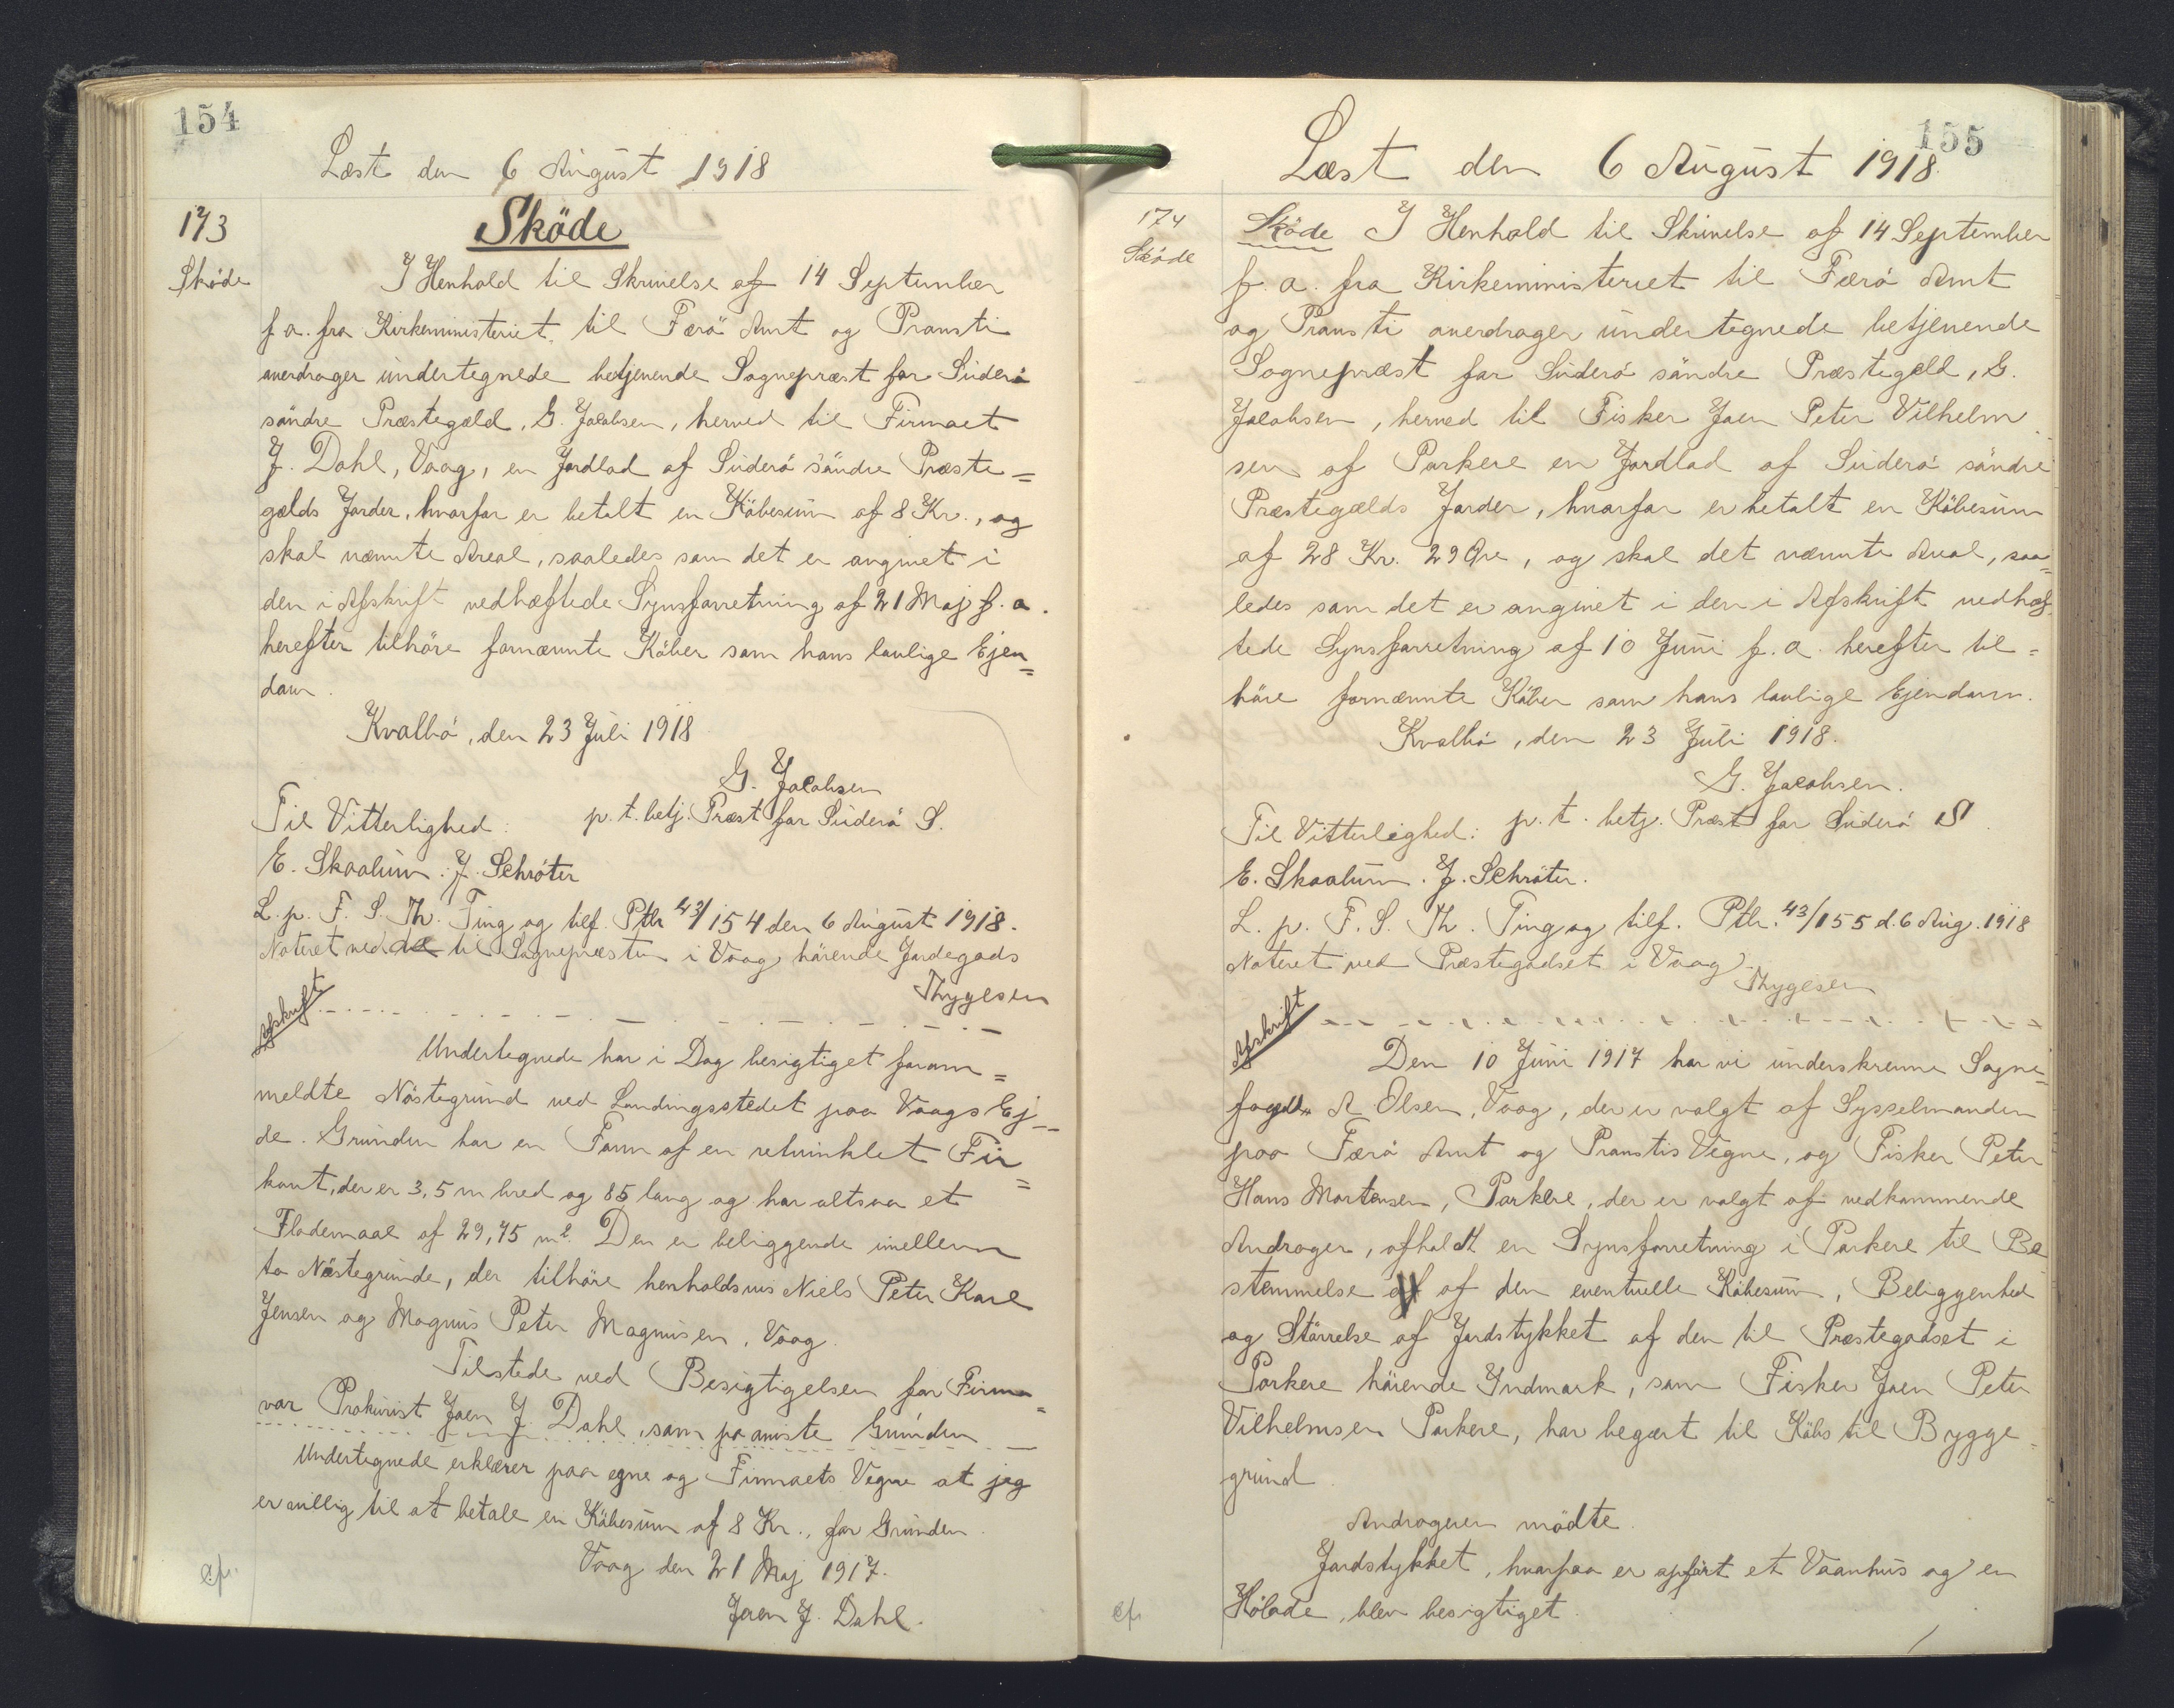 154
Læst den 6 August 1918
173
Sköde
Sköde
I Henhold til Skrivelse af 14 September
f. a. fra Kirkeministeriet til Færö Amt og Provsti
overdrager undertegnede betjenende Sognepræst for Suderö
söndre Præstegæld, G. Jacobsen, herved til Firmaet
J. Dahl, Vaag, en Jordlod af Suderö söndre Præste=
gælds Jorder, hvorfor er betalt en Köbesum af 8 Kr., og
skal nævnte Areal, saaledes som det er angivet i
den i Afskrift vedhæftede Synsforretning af 21 Maj f. a.
herefter tilhöre fornævnte Köber som hans lovlige Ejen=
dom.
Kvalbö, den 23 Juli 1918
G. Jacobsen
Til Vitterlighed: p. t. betj. Præst for Suderö S.
E. Skaalum. J. Schröter
L. p. F. S. Th. Ting og tilf. Ptlr 43/154 den 6 August 1918.
Noteret ved de til Sognepræsten i Vaag hörende Jordegods
Thygesen
Afskrift
Undertegnede har i Dag besigtiget foran=
meldte Nöstegrund ved Landingsstedet paa Vaags Ej=
de. Grunden har en Form af en retvinklet Fir=
kant, der er 3,5 m bred og 85 lang og har altsaa et
Flademaal af 29,75 m². Den er beliggende imellem
to Nöstegrunde, der tilhöre henholdsvis Niels Peter Karl
Jensen og Magnus Peter Magnusen, Vaag.
Tilstede ved Besigtigelsen for Firma=
var Prokurist Joen J. Dahl, som paaviste Grunden
Undertegnede erklærer paa egne og Firmaets Vegne at jeg
er villig til at betale en Köbesum af 8 Kr., for Grunden.
Vaag den 21 Maj 1917.
Joen J. Dahl.
155
Læst den 6 August 1918.
174
Sköde
Sköde I Henhold til Skrivelse af 14 September
f. a. fra Kirkeministeriet til Færö Amt
og Provsti overdrager undertegnede betjenende
Sognepræst for Suderö söndre Præstegæld, G.
Jacobsen, herved til Fisker Joen Peter Vilhelm
sen af Porkere en Jordlod af Suderö söndre
Præstegælds Jorder, hvorfor er betalt en Köbesum
af 28 Kr. 29 Öre, og skal det nævnte Areal, saa=
ledes som det er angivet i den i Afskrift vedhæf
tede Synsforretning af 10 Juni f. a. herefter til=
höre fornævnte Köber som hans lovlige Ejendom.
Kvalbö, den 23 Juli 1918.
G. Jacobsen.
Til Vitterlighed: p. t. betj. Præst for Suderö S
E. Skaalum. J. Schröter.
L. p. F. S. Th. Ting og tilf. Ptlr. 43/155 d. 6 Aug. 1918
Noteret ved Præstegodset i Vaag
Thygesen
Afskrift
Den 10 Juni 1917 har vi underskrevne Sogne=
foged A. Olsen, Vaag, der er valgt af Sysselmanden
paa Færö Amt og Provstis Vegne, og Fisker Peter
Hans Mortensen, Porkere, der er valgt af vedkommende
Androger, afholdt en Synsforretning i Porkere til Be
stemmelse af den eventuelle Köbesum, Beliggenhed
og Störrelse af Jordstykket af den til Præstegodset i
Porkere hörende Indmark, som Fisker Joen Peter
Vilhelmsen Porkere, har begært til Köbs til Bygge=
grund
Androgeren mödte.
Jordstykket, hvorpaa er opfört et Vaanhus og en
Hölade, blev besigtiget.